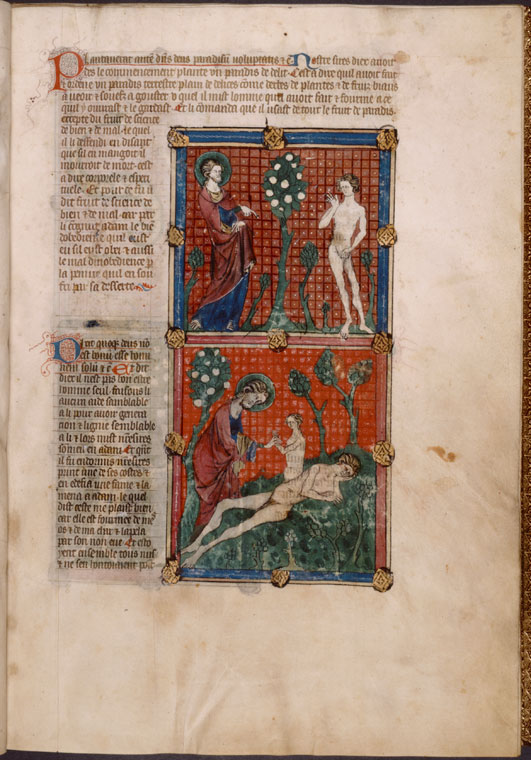 Plantaverat aute dns deus paradisu voluptatis Nostre sires diex avoit
des le commencement plante un paradis de delit. Cest a dire quil avoit fait
ordene un paradis terrestre plain de delices come derbes de plantes de fruiz bians
a veoir souefz a gouster quel il mist lomme quil avoit fait fourme a ce
quil ouvrast le gardast. Et li comanda que il usast de tout le fruit de paradis
excepte du fruit de science
de bien de mal. le quel
il li deffendi en disant
que sil en mangoit il
mourroit de mort. cest
a dire corporele esperi
tuele. Et pour ce fu il
dit fruit de science de
bien de mal. car par
li adam le bie
dobedience quil eust
eu sil eust obei aussi
le mal dinobedience p
la penine quil en sou
fri par sa desserte
Dixit quoqz deus no
est bonu esse homi
nem solu Et dit
diex il nest pas bon estre
lomme seul. faisons li
aucun aide samblable
a li pour avoir genera
cion lignie semblable
a li. lors mist nre sires
someil en adam. Et qnt
il fu endormis nre sires
prist une de ses costes
en edefia une fame la
mena a adam. le quel
dist ceste me plaist bien
car elle est fourmee de mes
os de ma char lapela
par son non eve. Et es
toient ensemble tous nus
ne sen hontoient pas